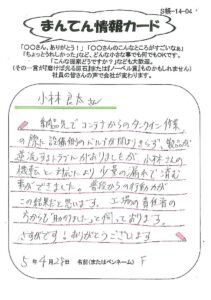 S様-14-04
まんてん情報カード
「○○さん、ありがとう！」「○○さんのこんなところがすごいなぁ」
「ちょっとうれしかった」など、どんな小さな事でも何でもOKです。
「こんな提案どうですか？」など大歓迎。
(その一言が磨けば光る原石またはノーベル賞ものかもしれません)
社員の皆さんの声で会社が変わります。
小林 良太 さん
納品先でコンテナからのタンクイン作業
の際、設備側のバルブが閉まりきらず、製品が
逆流するトラブルがありましたが 小林さんの
機転と対応により少量の漏れで済む
事ができました。普段からの行動力が
この結果だと思います。工場の責任者の
方からも「助かりました」と伺っております。
さすがです！ありがとうございます
5年4月28日 名前(またはペンネーム) F